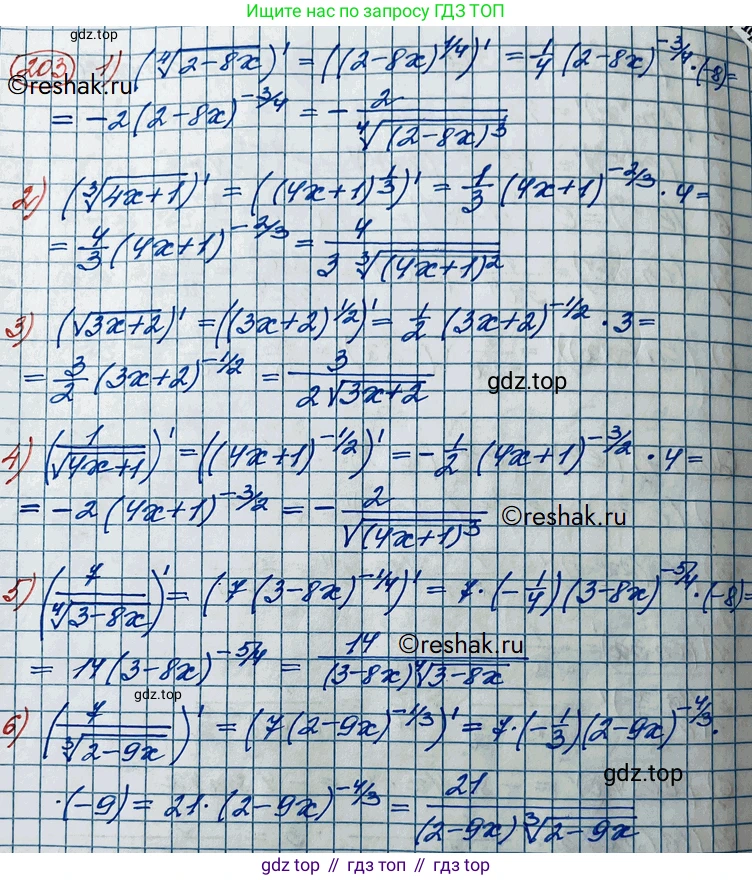 Ищите нас по запросу ГДЗ ТОП
203 1) (⁴√(2-8x))' = ((2-8x)^(1/4))' = 1/4 (2-8x)^(-3/4) · (-8) =
= -2(2-8x)^(-3/4) = - 2/⁴√((2-8x)³)
gdz.top
2) (³√(4x+1))' = ((4x+1)^(1/3))' = 1/3 (4x+1)^(-2/3) · 4 =
= 4/3 (4x+1)^(-2/3) = 4/(3 ³√((4x+1)²))
3) (√(3x+2))' = ((3x+2)^(1/2))' = 1/2 (3x+2)^(-1/2) · 3 =
= 3/2 (3x+2)^(-1/2) = 3/(2√(3x+2))
gdz.top
4) (1/√(4x+1))' = ((4x+1)^(-1/2))' = - 1/2 (4x+1)^(-3/2) · 4 =
= -2(4x+1)^(-3/2) = - 2/√((4x+1)³)
©reshak.ru
5) (7/⁴√(3-8x))' = (7(3-8x)^(-1/4))' = 7·(-1/4)(3-8x)^(-5/4) · (-8) =
= 14(3-8x)^(-5/4) = 14/((3-8x)⁴√(3-8x))
©reshak.ru
gdz.top
6) (7/³√(2-9x))' = (7(2-9x)^(-1/3))' = 7·(-1/3)(2-9x)^(-4/3) ·
· (-9) = 21·(2-9x)^(-4/3) = 21/((2-9x)³√(2-9x))
gdz.top
gdz top // гдз топ // gdz.top